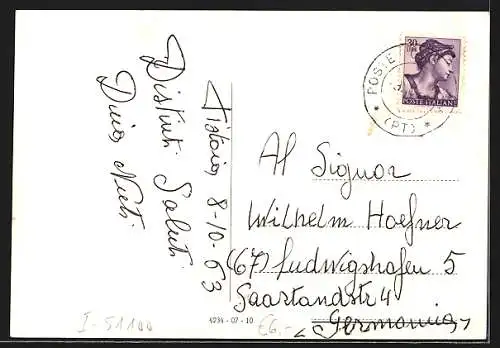 Pistoia, 8-10-63
Distinti Saluti
Dino Nuti
POSTE
(PT)
30
LIRE
POSTE ITALIANE
Al Signor
Wilhelm Hoefner
(67) Ludwigshafen 5
Saarlandstr 4
Germania
4234 - 07 - 10
€6,-
I-51100